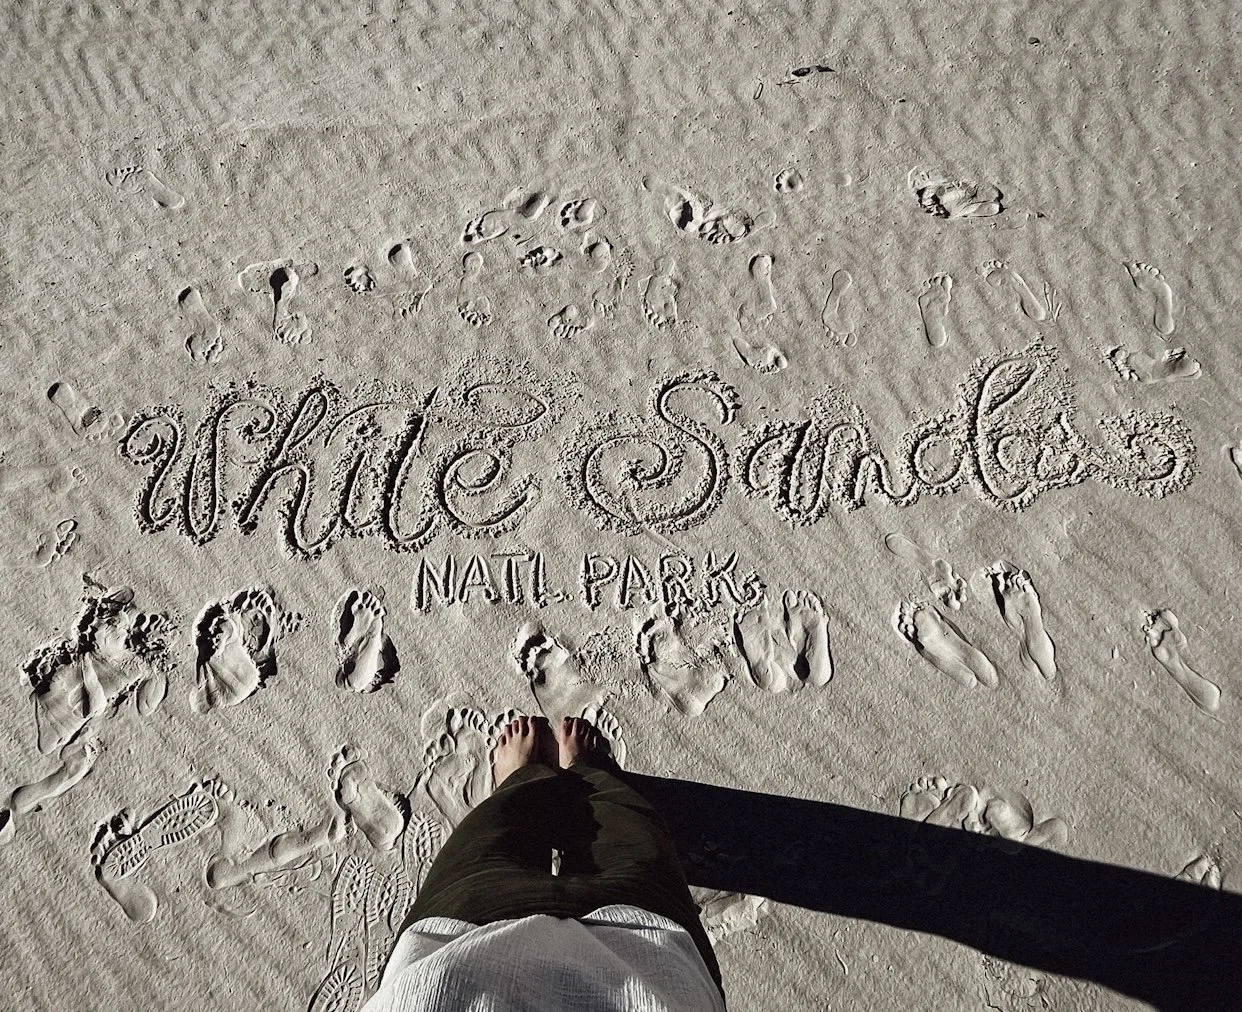 White Sands
NATL. PARK